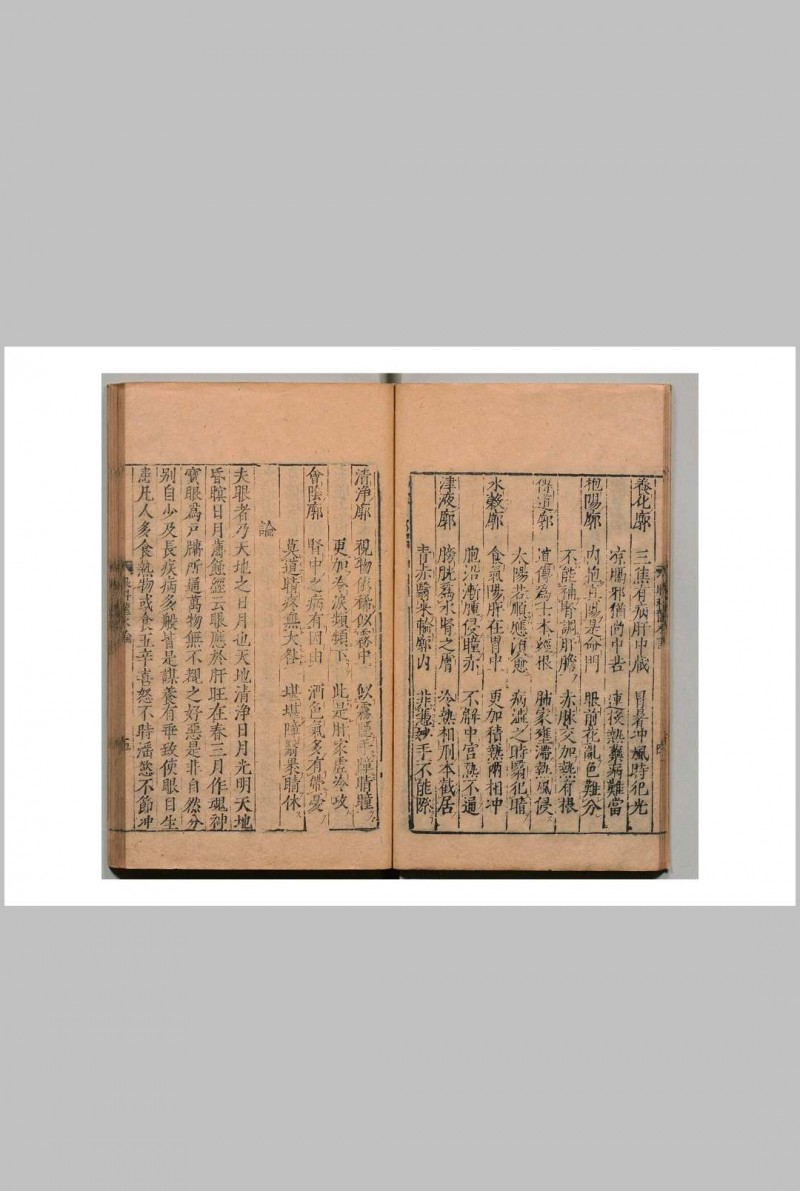 養化廓 三焦有病肝中藏 冒暑冲風時犯光
凉膈邪猶尚中苦 連接熱藥病難當
抱陽廓 內抱真陽是命門 眼前花亂色難分
不能補腎調肝膽 赤脉交加熱有根
傳道廓 道傳為主本經根 肺家壅滯熱風侵
太陽若順應須愈 病澁之時翳犯睛
水穀廓 食氣陽肝在胃中 更加積熱兩相冲
胞沿漸腫侵瞳赤 不解中宫熱不通
津液廓 膀胱為水腎之膚 冷熱相刑本截居
青赤翳來輪廓內 非憑妙手不能除
四
清淨廓 視物依稀似霧中 似霧隱手障睛瞳
更加冷淚頻頻下 此是肝家虛冷攻
會陰廓 腎中之病有因由 酒色氣多有帶憂
莫道睛疼無大咎 堪堪障翳裹睛休
論
夫眼者乃天地之日月也天地清淨日月光明天地
昏暝日月虧餘經云眼應於肝旺在春三月作魂神
寶眼為戶牖所通萬物無不視之好惡是非自然分
别自少及長疾病多般皆是謀養有垂致使眼目生
患凡人多食熱物或食五辛喜怒不時滛慾不節冲
五